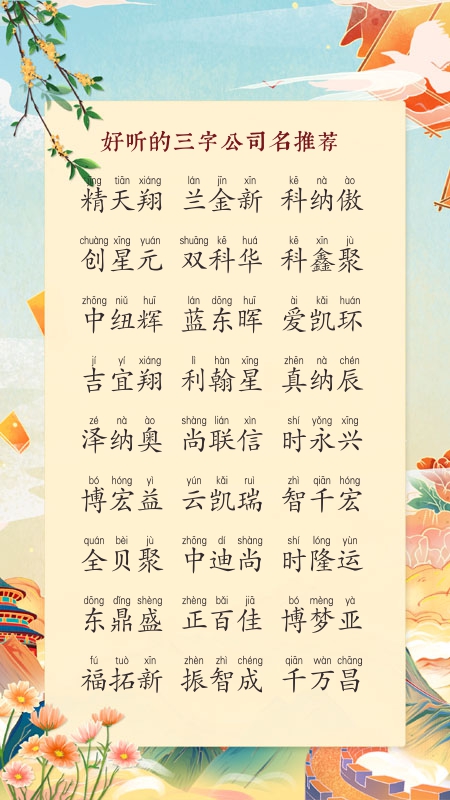 好听的三字公司名推荐
jīng tiān xiáng lán jīn xīn kē nà ào
精天翔 兰金新 科纳傲
chuàng xīng yuán shuāng kē huá kē xīn jù
创星元 双科华 科鑫聚
zhōng niǔ huī lán dōng huī ài kǎi huán
中纽辉 蓝东晖 爱凯环
jí yí xiáng lì hàn xīng zhēn nà chén
吉宜翔 利翰星 真纳辰
zé nà ào shàng lián xìn shí yǒng xīng
泽纳奥 尚联信 时永兴
bó hóng yì yún kǎi ruì zhì qiān hóng
博宏益 云凯瑞 智千宏
quán bèi jù zhōng dí shàng shí lóng yùn
全贝聚 中迪尚 时隆运
dōng dǐng shèng zhèng bǎi jiā bó mèng yà
东鼎盛 正百佳 博梦亚
fú tuò xīn zhèn zhì chéng qiān wàn chāng
福拓新 振智成 千万昌